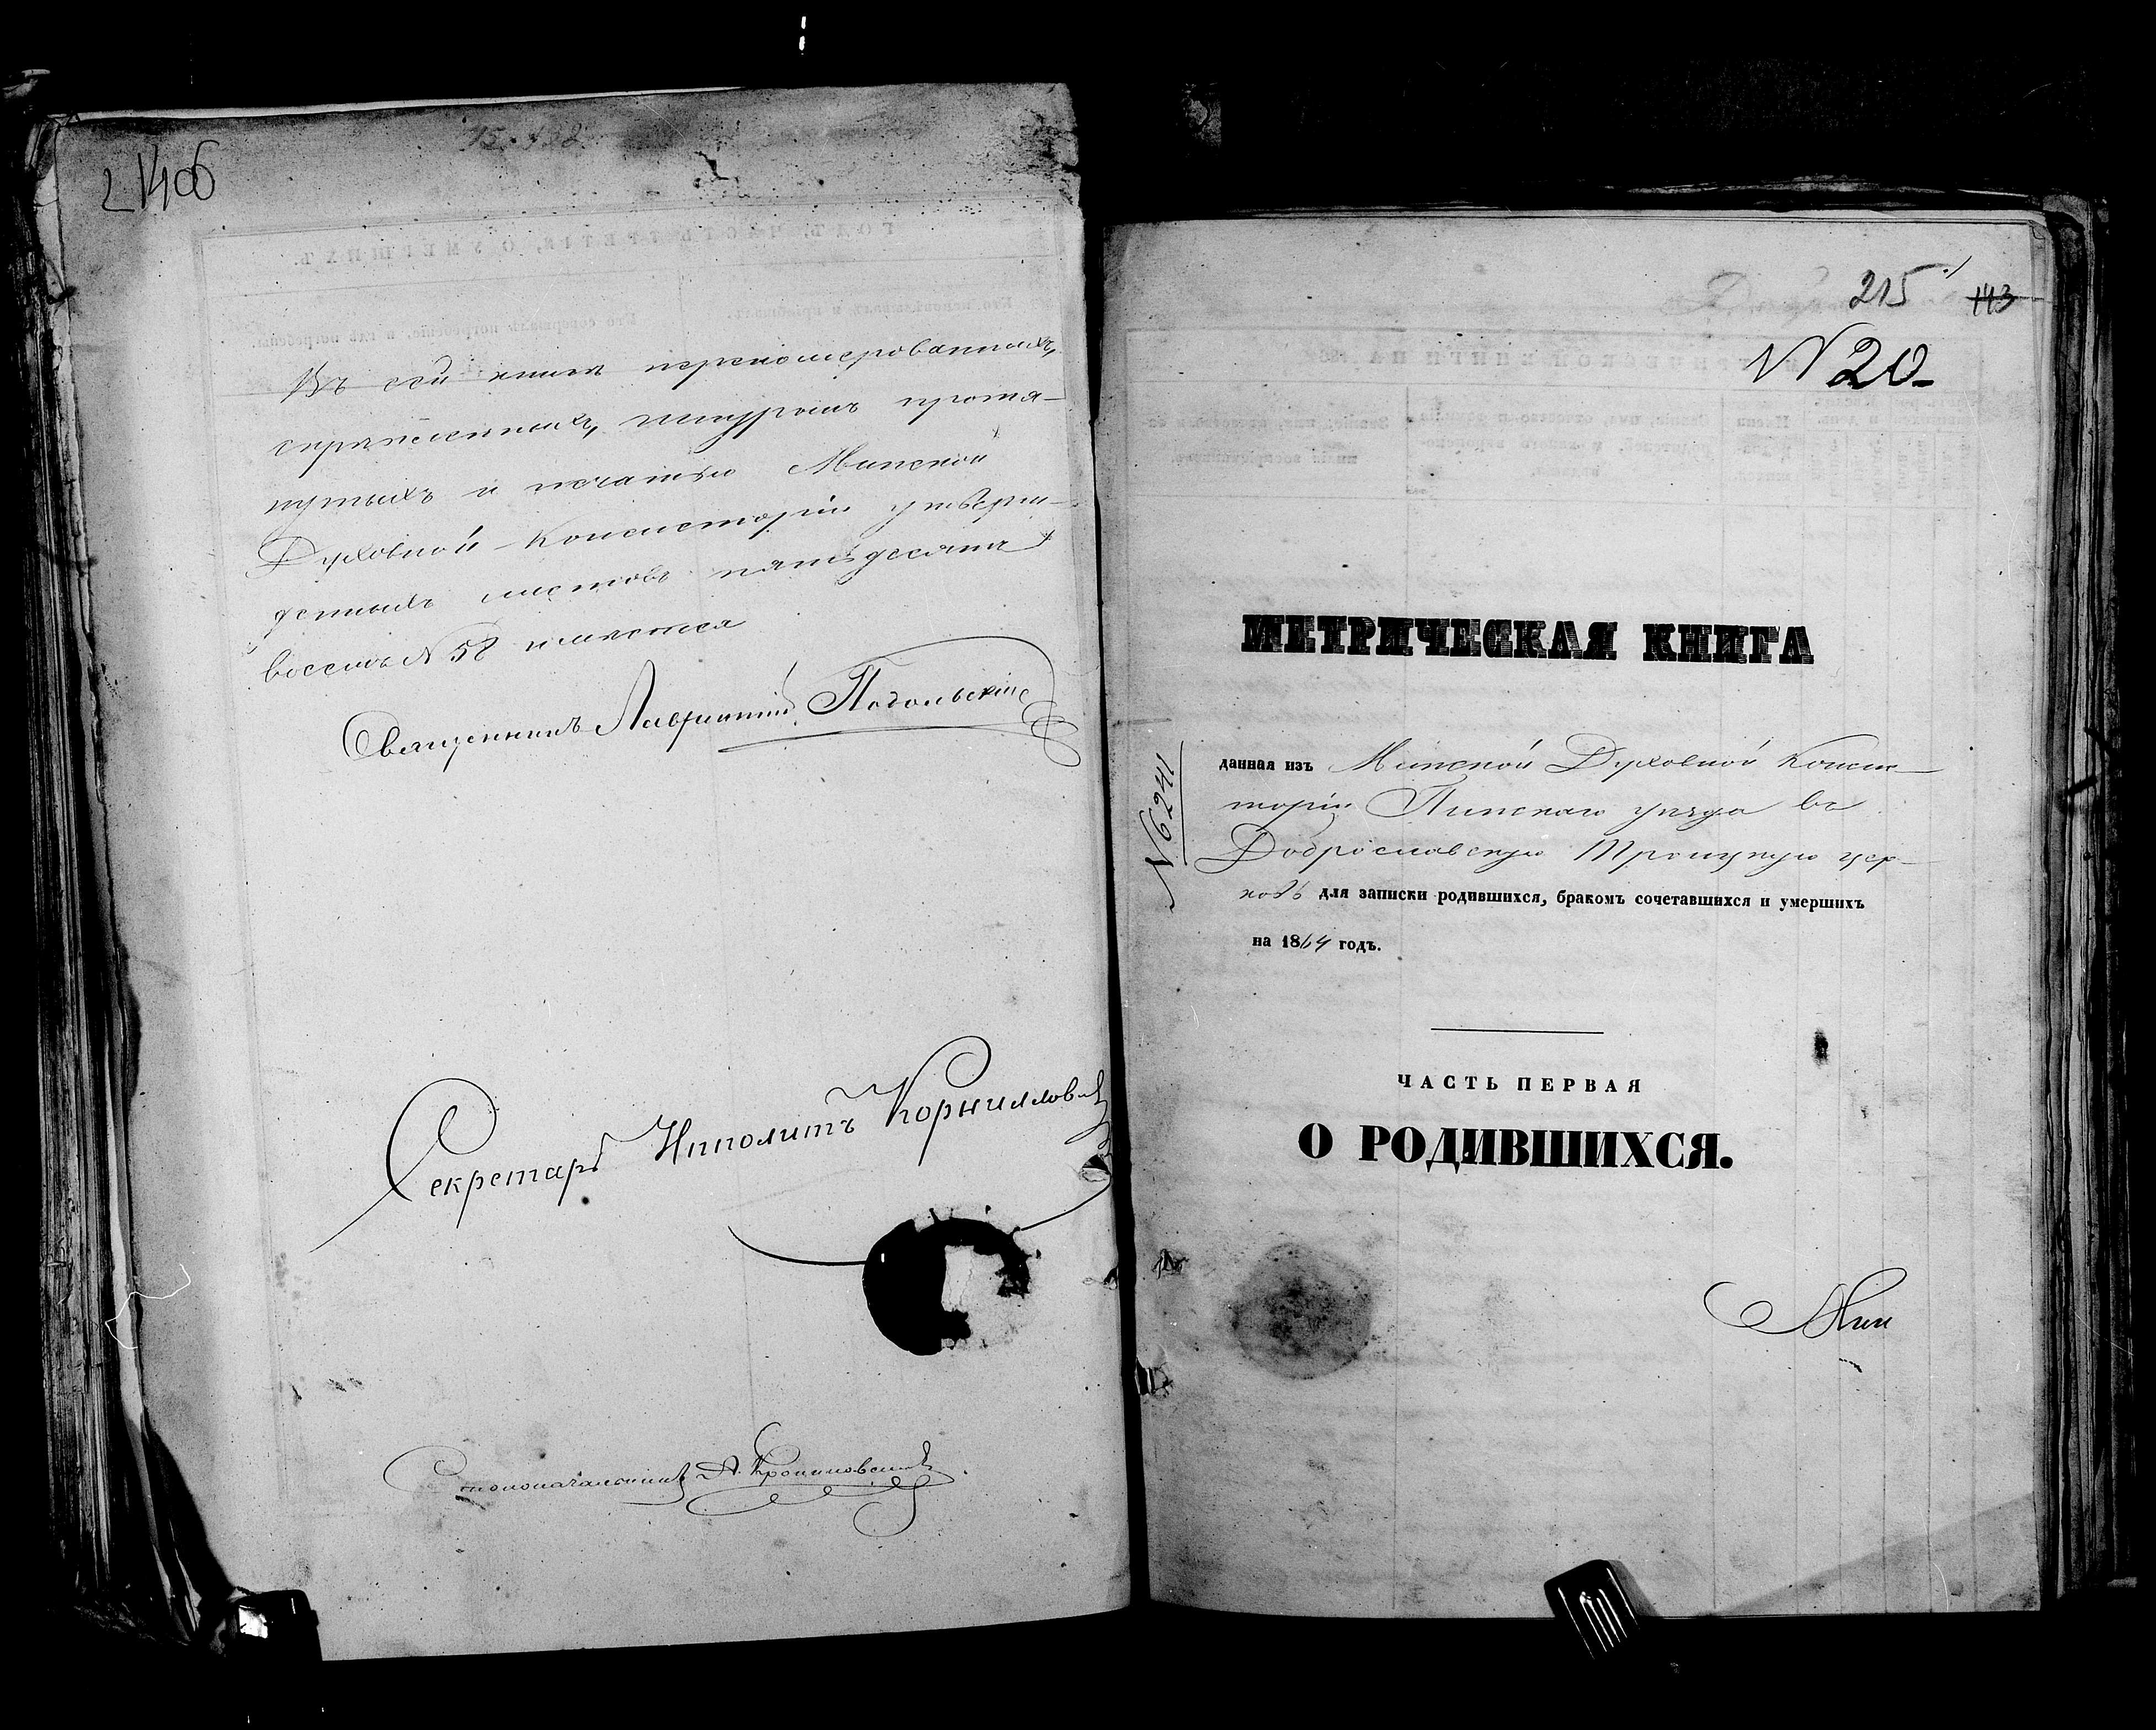 214об
Въ сей книгѣ перенумерованныхъ,
скрѣпленныхъ, шнуромъ протя-
нутыхъ и печатью Минской
Духовной Консисторіи утверж-
денныхъ листовъ пятьдесятъ
восемь N 58 имѣется
Священникъ Лаврентій Подольскій
Секретарь Ипполитъ Корнилловъ
Столоначальникъ А.
215
113
N 20
МЕТРИЧЕСКАЯ КНИГА
N 6241
данная изъ Минской Духовной Консис-
торіи Пинскаго уѣзда въ
Доброславскую Троицкую цер-
ковь для записки родившихся, бракомъ сочетавшихся и умершихъ
на 1864 годъ.
ЧАСТЬ ПЕРВАЯ
О РОДИВШИХСЯ.